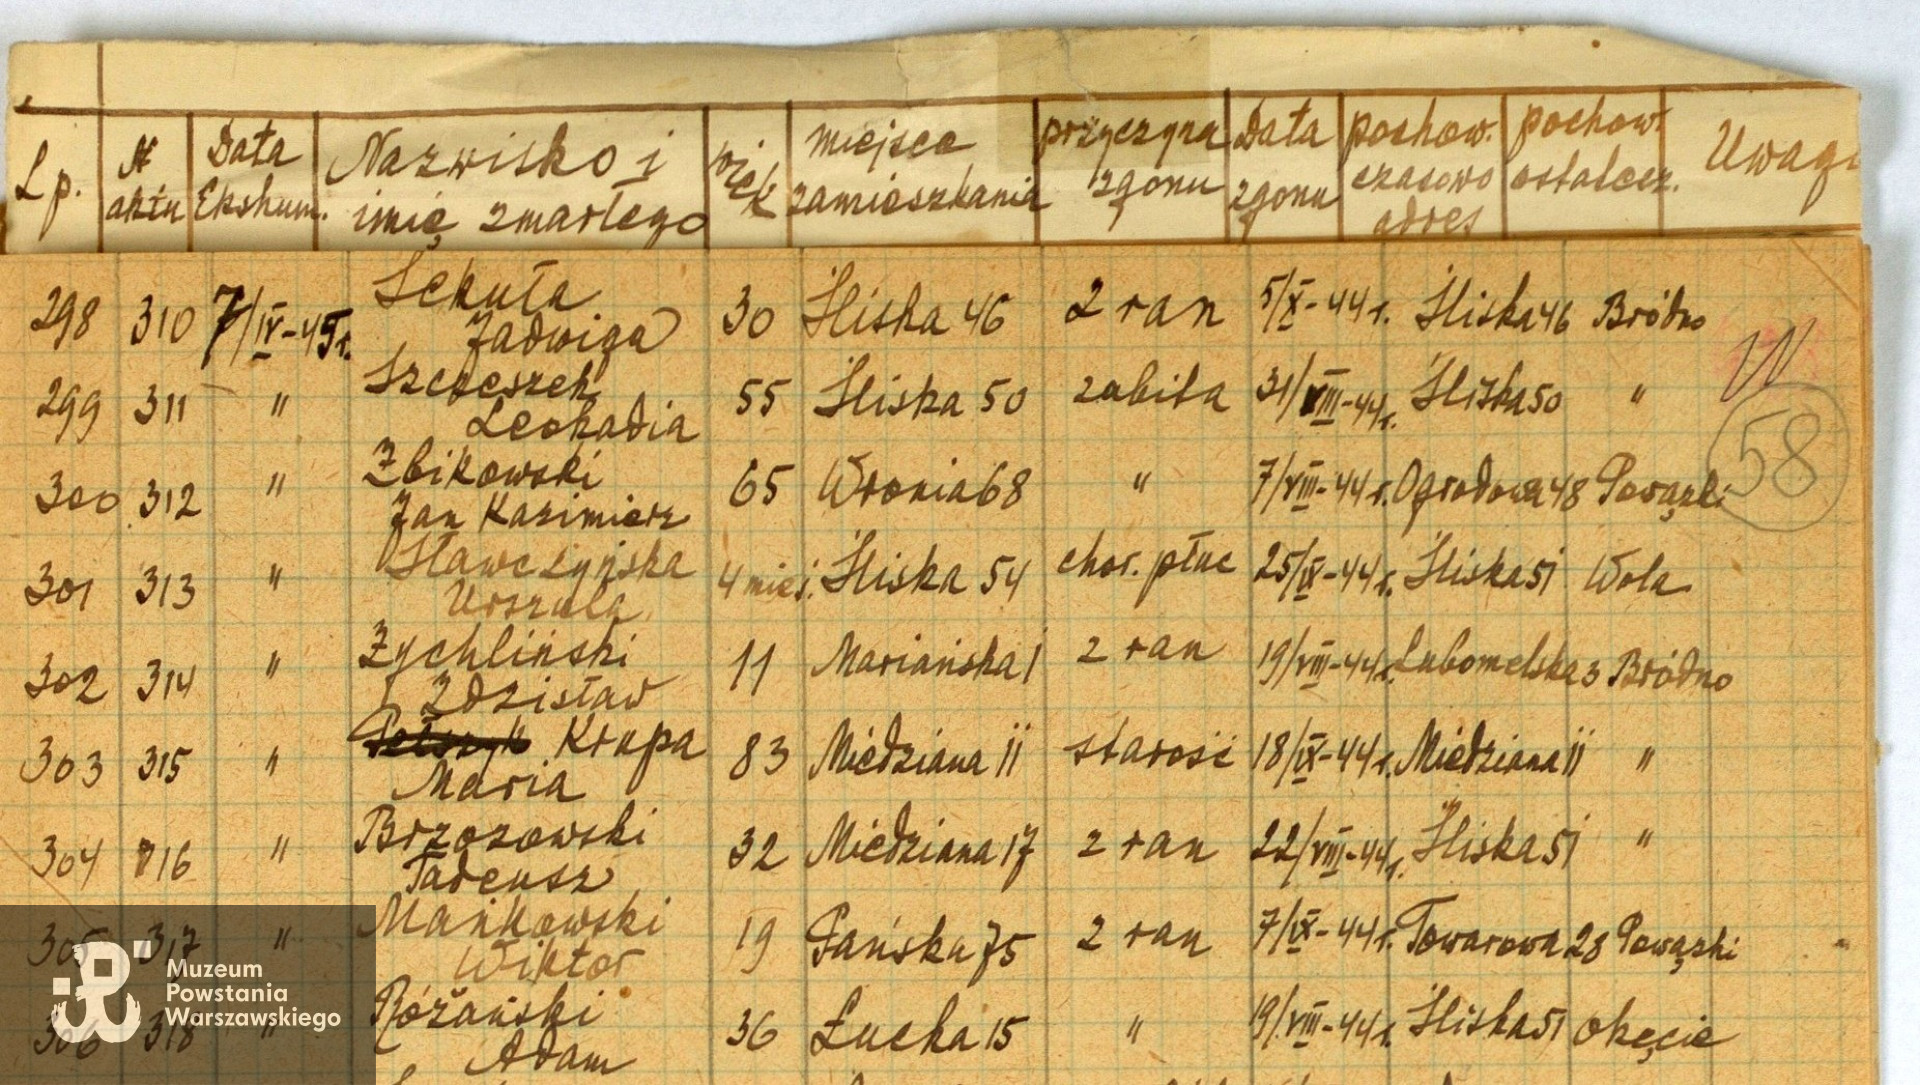 Lp. № aktu Data Ekshum. Nazwisko i imię zmarłego wiek miejsce zamieszkania przyczyna zgonu Data zgonu pochow. czasowo adres pochow. ostatecz. Uwagi
298 310 7/IV-45r. Sekuła Jadwiga 30 Śliska 46 z ran 5/X-44r. Śliska 46 Bródno
299 311 " Leokadia 55 Śliska 50 zabita 31/VIII-44r. Śliska 50 "
300 312 " Zbikowski Jan Kazimierz 65 Wronia 68 " 7/VIII-44r. Ogrodowa 48 Powązki
58
301 313 " Sławczyńska Urszula 4 mies. Śliska 54 chor. płuc 25/IX-44r. Śliska 51 Wola
302 314 " Zychliński Zdzisław 11 Mariańska 1 z ran 19/VIII-44r. Lubomelska 3 Bródno
303 315 " Krupa Maria 83 Miedziana 11 starość 18/IX-44r. Miedziana 11 "
304 716 " Brzozowski Tadeusz 32 Miedziana 17 z ran 22/VIII-44r. Śliska 51 "
305 317 " Mańkowski Wiktor 19 Pańska 75 z ran 7/IX-44r. Towarowa 28 Powązki
306 318 " Różański Adam 36 Łucka 15 " 19/VIII-44r. Śliska 51 Okęcie
Muzeum
Powstania
Warszawskiego